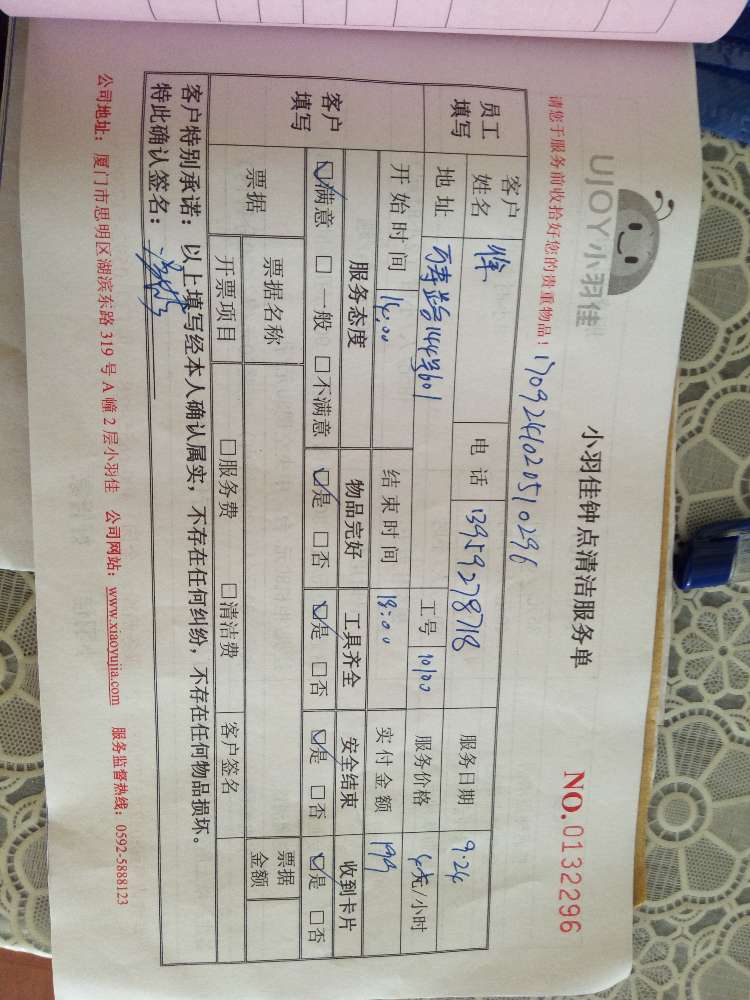 UJOY小羽佳
小羽佳钟点清洁服务单
NO.0132296
请您于服务前收拾好您的贵重物品！
1709241020510296
员工填写
客户姓名
电话 13959278718
服务日期 9.24
地址 万寿 144号601
工号 10100
服务价格 元/小时
开始时间 14:00
结束时间 18:00
实付金额
客户填写
服务态度 物品完好 工具齐全 安全结束 收到卡片
☑满意 □一般 □不满意 ☑是 □否 ☑是 □否 ☑是 □否 ☑是 □否
票据
票据名称
票据金额
开票项目 □服务费 □清洁费 客户签名
客户特别承诺：以上填写经本人确认属实，不存在任何纠纷，不存在任何物品损坏。
特此确认签名：
公司地址：厦门市思明区湖滨东路319号A幢2层小羽佳 公司网站：www.xiaoyujia.com 服务监督热线：0592-5888123